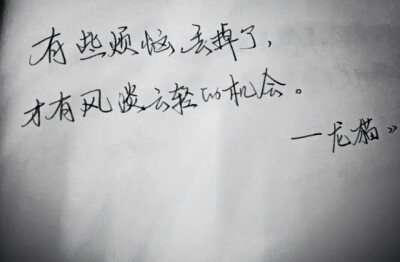 有些烦恼丢掉了，
才有风淡云轻的机会。
—龙猫》